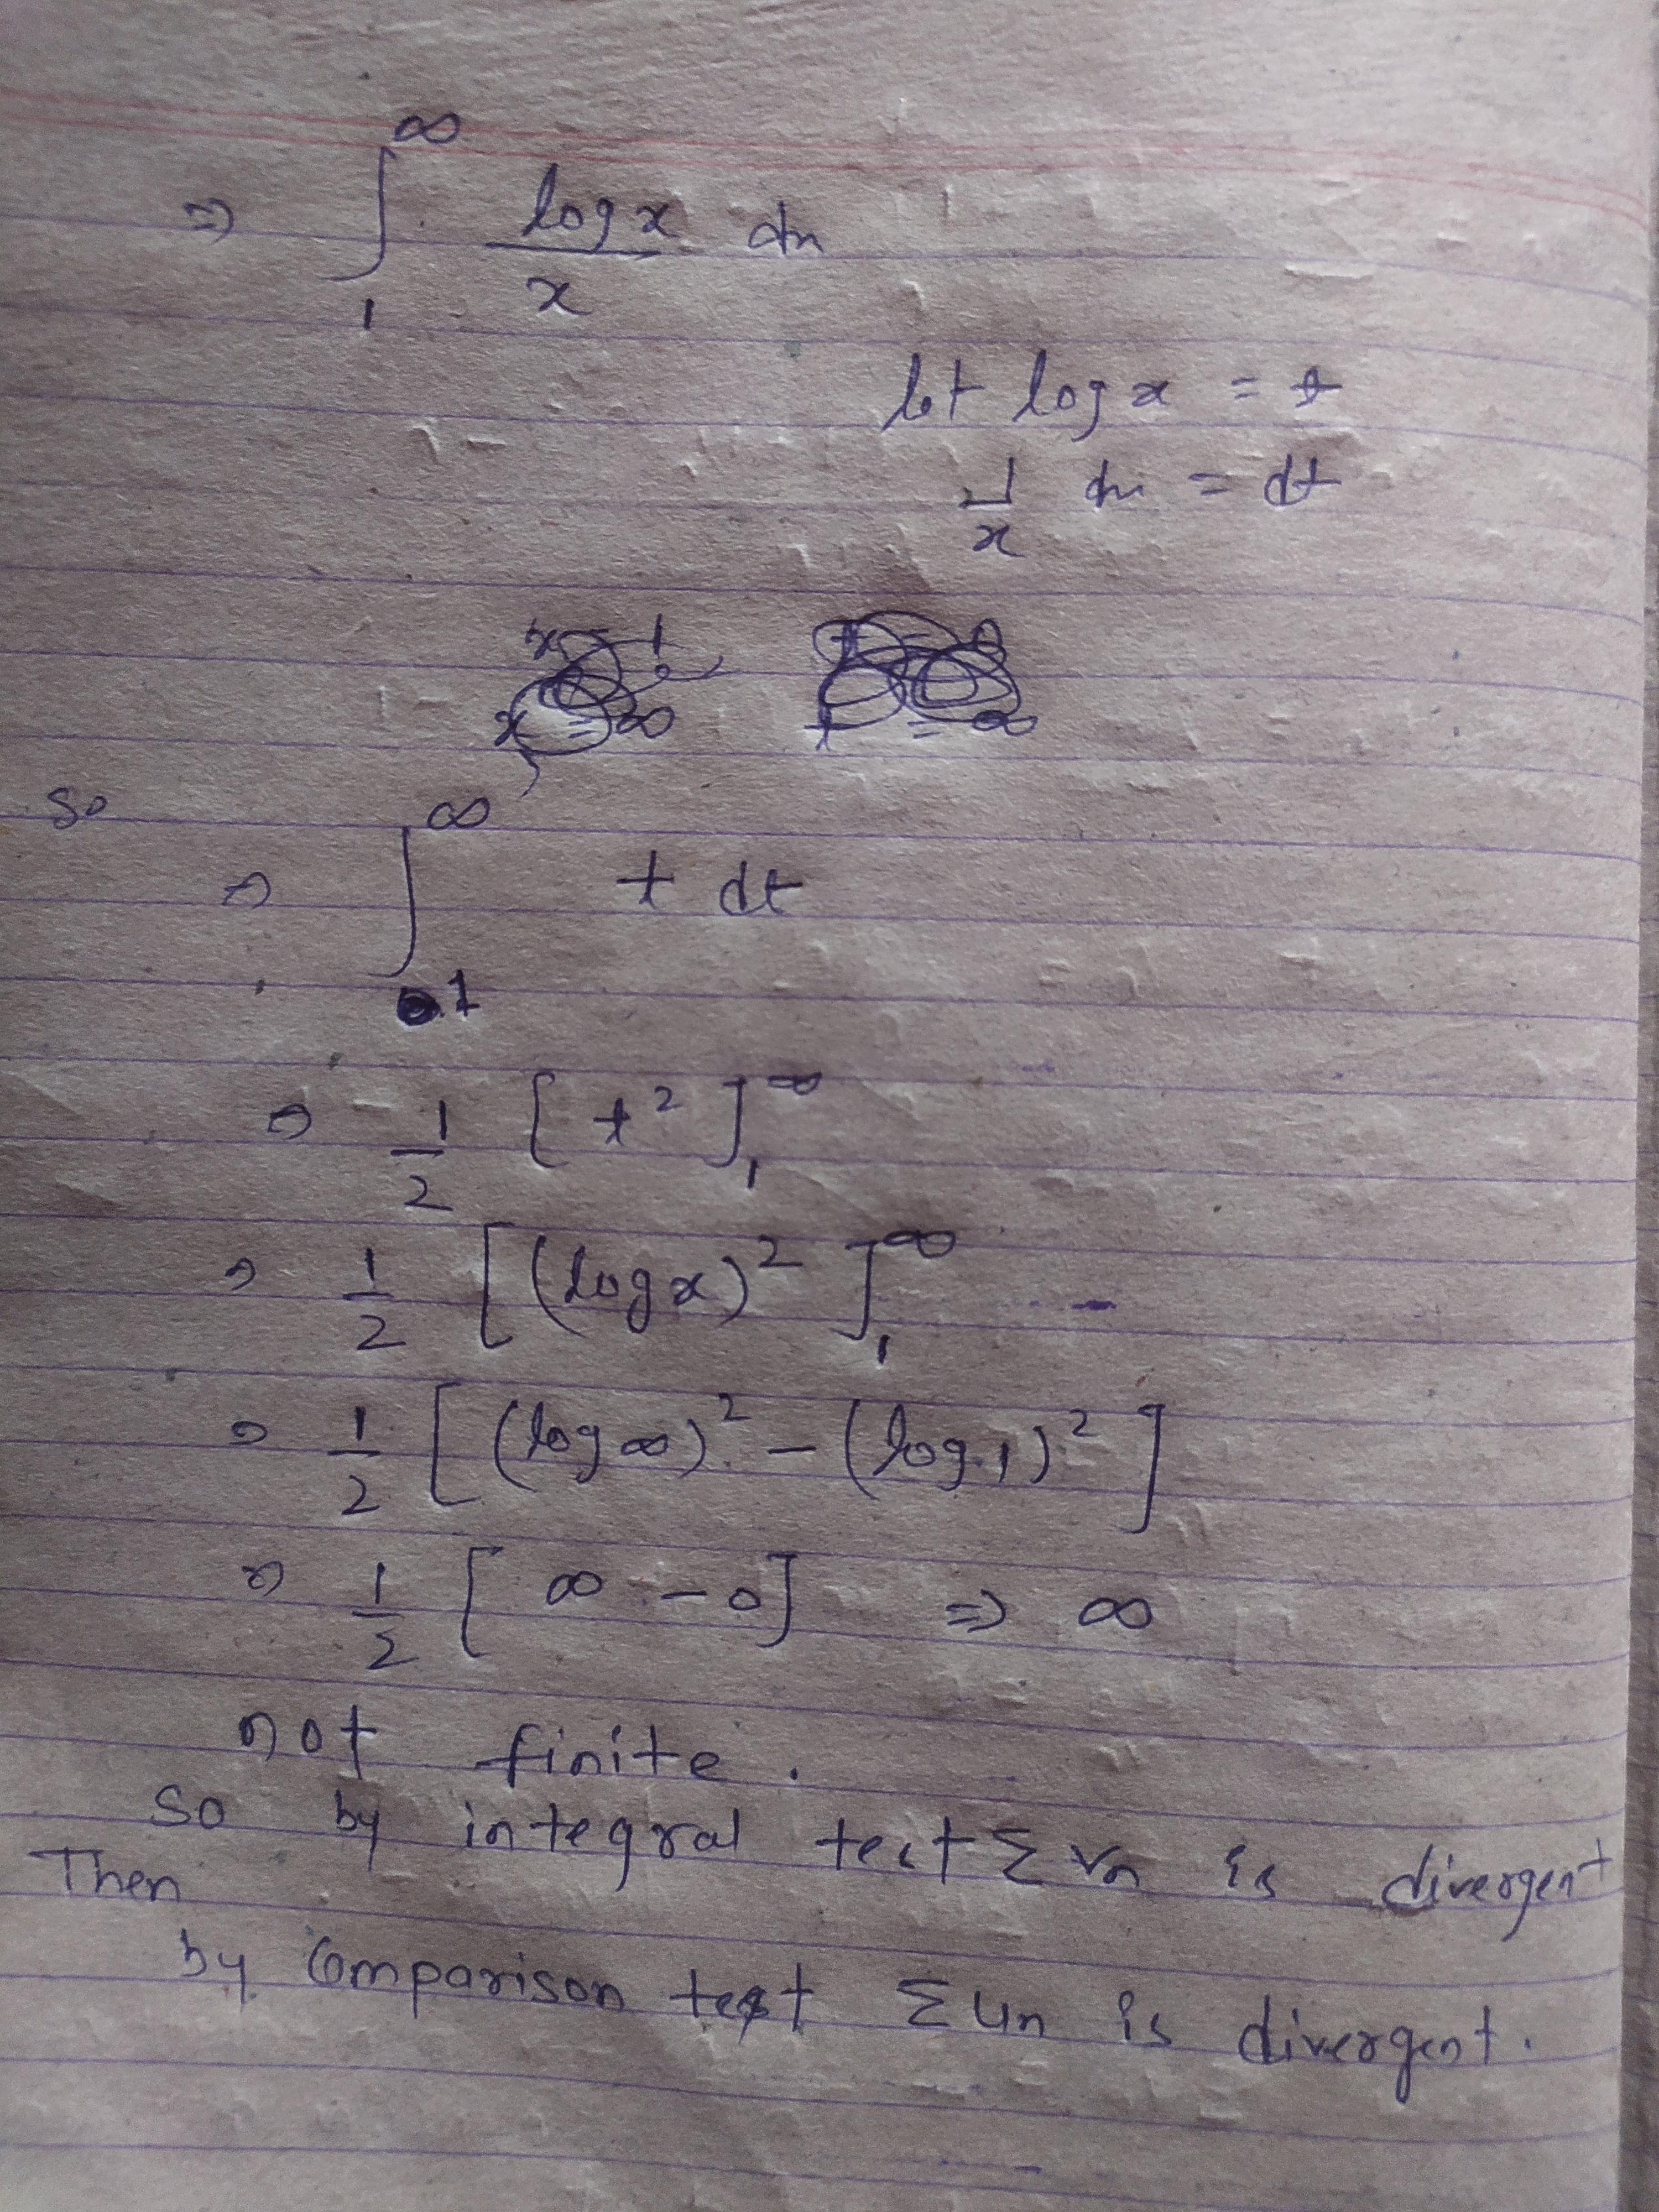 ⇒ ∫₁^∞ log x / x dx
let log x = t
1/x dx = dt
x = 1 t = 0
x = ∞ t = ∞
so
⇒ ∫₁^∞ t dt
⇒ 1/2 [t²]₁^∞
⇒ 1/2 [(log x)²]₁^∞
⇒ 1/2 [(log ∞)² - (log 1)²]
⇒ 1/2 [∞ - 0] ⇒ ∞
not finite.
so by integral test Σ vn is divergent
Then
by Comparison test Σ un is divergent.